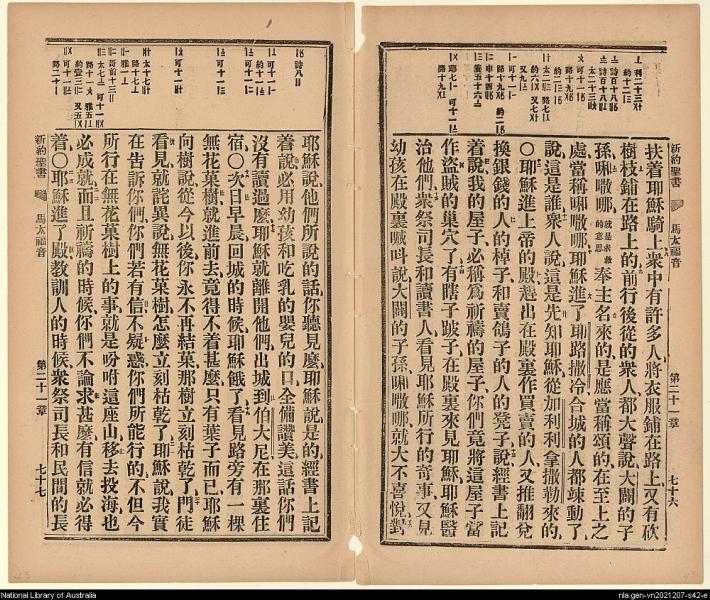 新約聖書 馬太福音 第二十一章 七十六
扶着耶穌騎上衆中有許多人將衣服鋪在路上又有砍
樹枝鋪在路上的前行後從的衆人都大聲說大闢的子
孫㖫㗣哪就是求救的意思奉主名來的是應當稱頌的在至上之
處當稱㖫㗣哪耶穌進了耶路撒冷合城的人都竦動了
說這是誰衆人說這是先知耶穌從加利利拿撒勒來的
○耶穌進上帝的殿趕出在殿裏作買賣的人又推翻兌
換銀錢的人的棹子和賣鴿子的人的凳子說經書上記
着說我的屋子必稱爲祈禱的屋子你們竟將這屋子當
作盜賊的巢穴了有瞎子跛子在殿裏來見耶穌耶穌醫
治他們衆祭司長和讀書人看見耶穌所行的奇事又見
幼孩在殿裏喊呌說大闢的子孫㖫㗣哪就大不喜悅對
耶穌說他們所說的話你聽見麽耶穌說是的經書上記
着說必用幼孩和吃乳的嬰兒的口全備讚美這話你們
沒有讀過麽耶穌就離開他們出城到伯大尼在那裏住
宿○次日早晨回城的時候耶穌餓了看見路旁有一棵
無花菓樹就進前去竟得不着甚麽只有葉子而已耶穌
向樹說從今以後你永不再結菓那樹立刻枯乾了門徒
看見就詫異說無花菓樹怎麽立刻枯乾了耶穌說我實
在告訴你們你們若有信不疑惑你們所能行的不但今
所行在無花菓樹上的事就是吩咐這座山移去投海也
必成就而且祈禱的時候你們不論求甚麽有信就必得
着○耶穌進了殿教訓人的時候衆祭司長和民間的長
新約聖書 馬太福音 第二十一章 七十七
National Library of Australia
nla.gen-vn2021207-s42-e